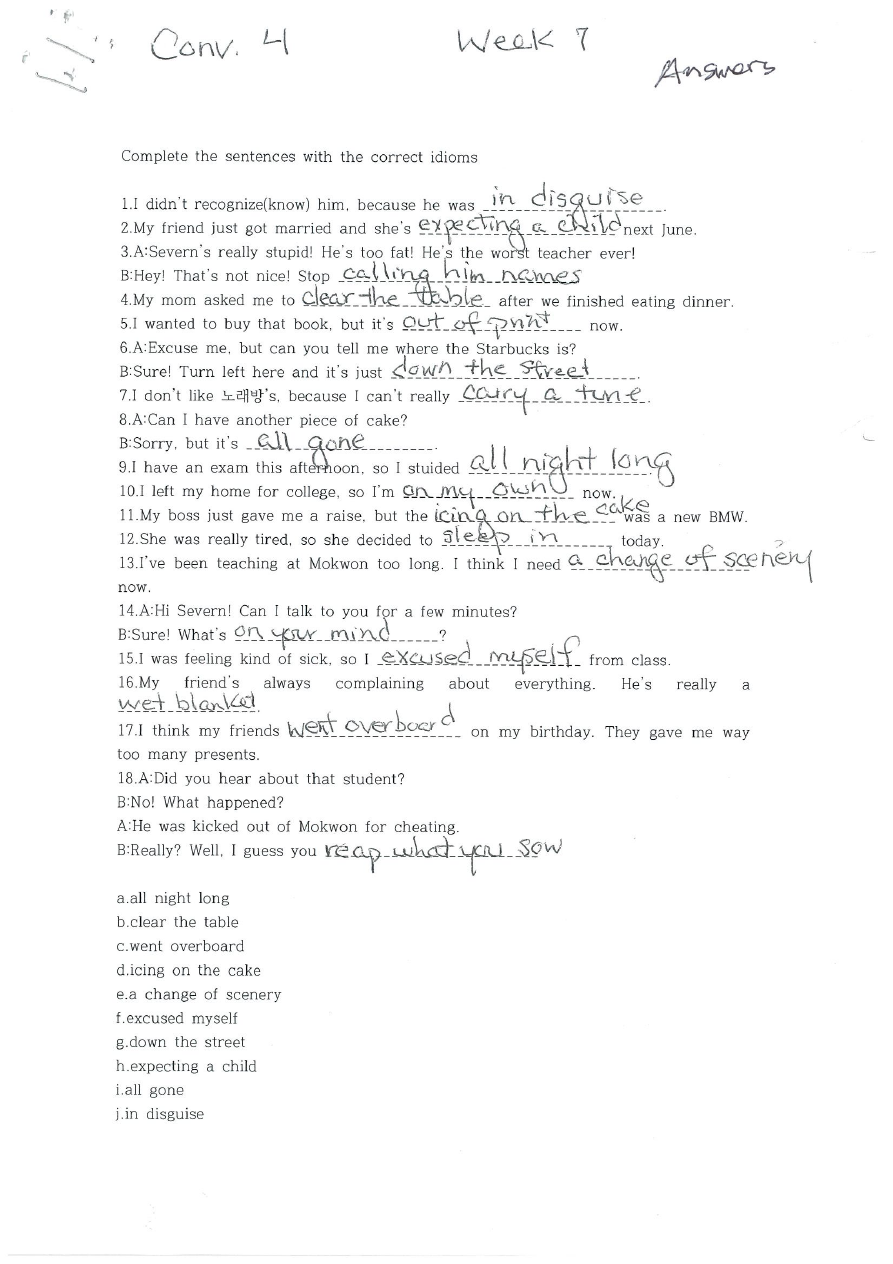 Conv. 4 Week 7
Answers
Complete the sentences with the correct idioms
1.I didn't recognize(know) him, because he was in disguise.
2.My friend just got married and she's expecting a child next June.
3.A:Severn's really stupid! He's too fat! He's the worst teacher ever!
B:Hey! That's not nice! Stop calling him names
4.My mom asked me to clear the table after we finished eating dinner.
5.I wanted to buy that book, but it's out of print now.
6.A:Excuse me, but can you tell me where the Starbucks is?
B:Sure! Turn left here and it's just down the street.
7.I don't like 노래방's, because I can't really carry a tune.
8.A:Can I have another piece of cake?
B:Sorry, but it's all gone.
9.I have an exam this afternoon, so I stuided all night long.
10.I left my home for college, so I'm on my own now.
11.My boss just gave me a raise, but the icing on the cake was a new BMW.
12.She was really tired, so she decided to sleep in today.
13.I've been teaching at Mokwon too long. I think I need a change of scenery
now.
14.A:Hi Severn! Can I talk to you for a few minutes?
B:Sure! What's on your mind?
15.I was feeling kind of sick, so I excused myself from class.
16.My friend's always complaining about everything. He's really a
wet blanket.
17.I think my friends went overboard on my birthday. They gave me way
too many presents.
18.A:Did you hear about that student?
B:No! What happened?
A:He was kicked out of Mokwon for cheating.
B:Really? Well, I guess you reap what you sow
a.all night long
b.clear the table
c.went overboard
d.icing on the cake
e.a change of scenery
f.excused myself
g.down the street
h.expecting a child
i.all gone
j.in disguise